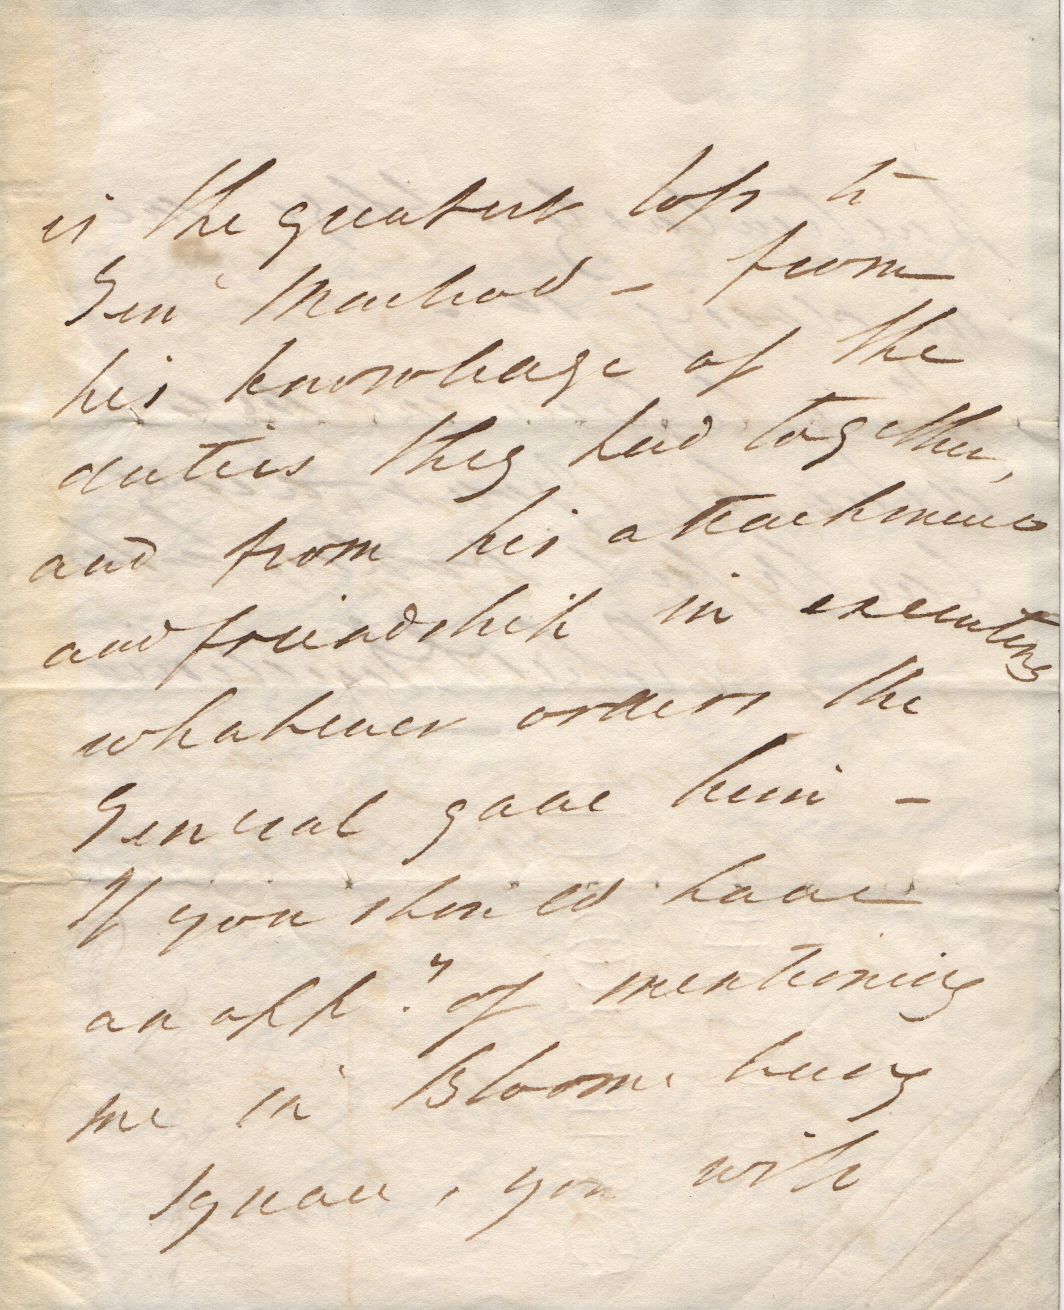 is the greatest loss to
Genl Macleod – from
his knowledge of the
duties they had together,
and from his attachment
and friendship in executing
whatever orders the
General gave him –
If you should have
an oppy. of mentioning
me in Bloomsbury
Square, you will